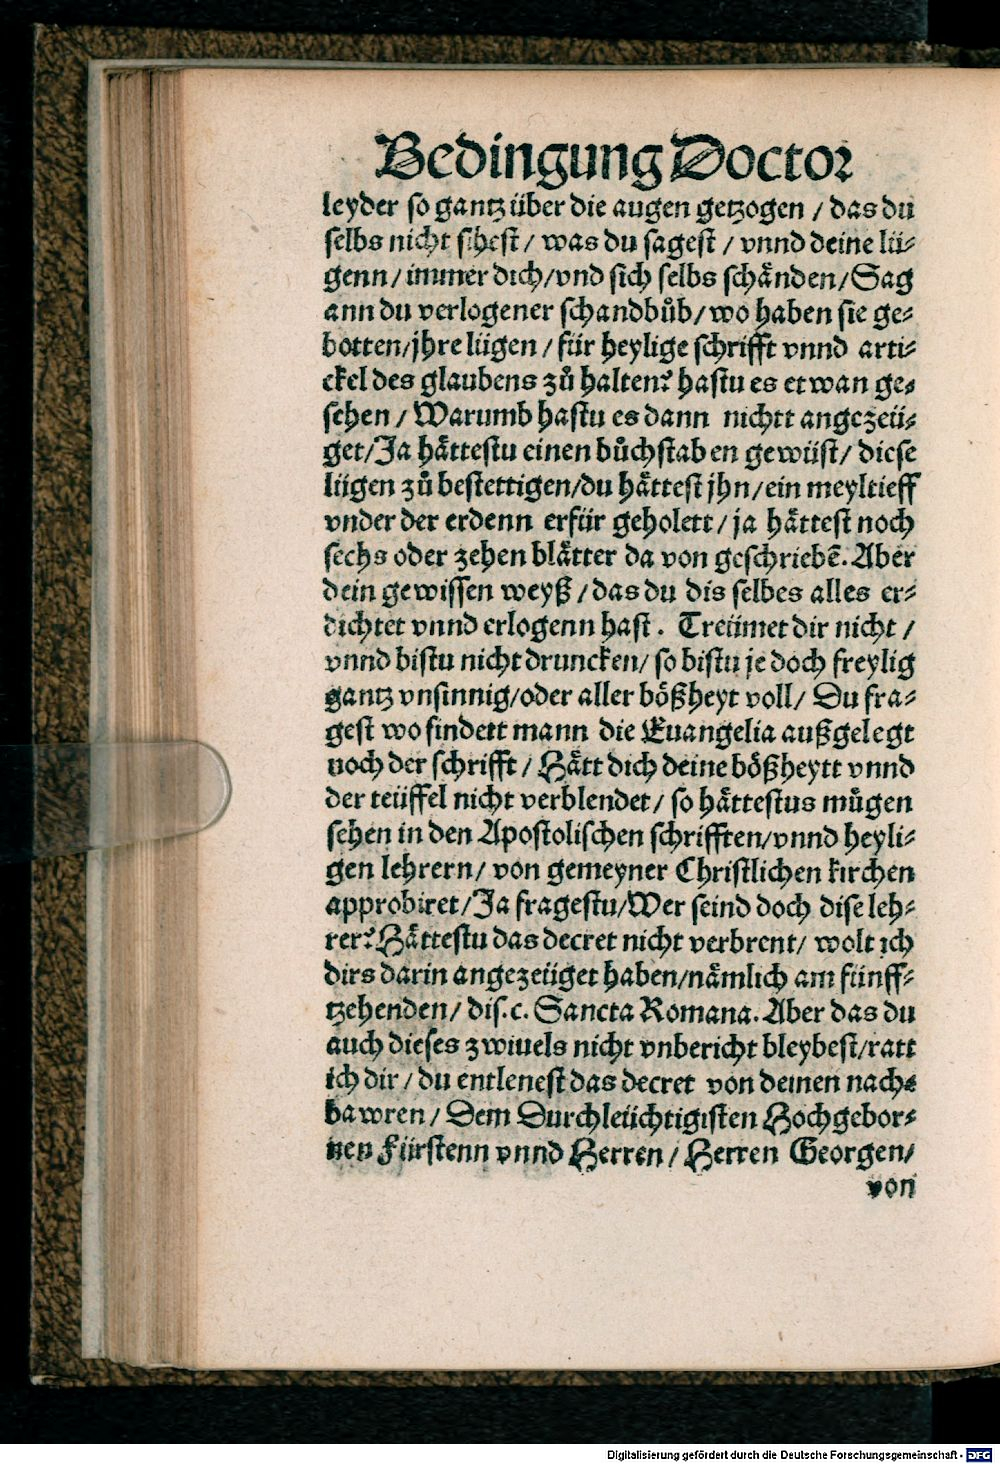 Bedingung Doctor
leyder so gantz über die augen getzogen / das du
selbs nicht sihest / was du sagest / vnnd deine lü-
genn / immer dich/vnd sich selbs schånden/Sag
ann du verlogener schandbůb/wo haben sie ge-
botten/jhre lügen / für heylige schrifft vnnd arti-
ckel des glaubens zů halten? hastu es etwan ge-
sehen / Warumb hastu es dann nichtt angezeü-
get/Ja håttestu einen bůchstaben gewüist/ diese
lügen zů bestettigen/du håttest jhn/ein meyl tieff
vnder der erdenn erfür geholett/ja håttest noch
sechs oder zehen blåtter da von geschriebē. Aber
dein gewissen weyß /das du dis selbes alles er-
dichtet vnnd erlogenn hast. Treümet dir nicht /
vnnd bistu nicht druncken/ so bistu je doch freylig
gantz vnsinnig/oder aller bößheyt voll/ Du fra-
gest wo findett mann die Euangelia außgelegt
noch der schrifft / Hått dich deine bößheytt vnnd
der teüffel nicht verblendet/ so håttestus můgen
sehen in den Apostolischen schrifften/vnnd heyli-
gen lehrern/ von gemeyner Christlichen kirchen
approbiret/Ja fragestu/Wer seind doch dise leh-
rer? Håttestu das decret nicht verbrent/ wolt ich
dirs darin angezeüget haben/nåmlich am fünff-
tzehenden/ dis.c. Sancta Romana. Aber das du
auch dieses zwiuels nicht vnbericht bleybest/ratt
ich dir/du entlenest das decret von deinen nach-
bawren/ Dem Durchleüchtigisten Hochgebor-
nen Fürstenn vnnd Herren/ Herren Georgen/
von
Digitalisierung gefördert durch die Deutsche Forschungsgemeinschaft - DFG